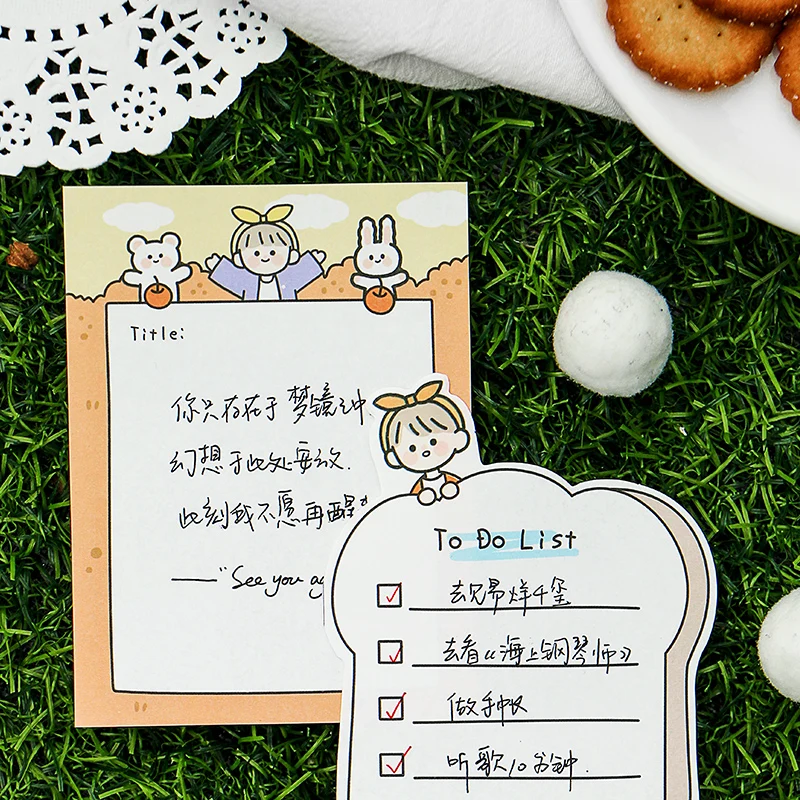 Title:
你只存在于梦镜之中.
幻想于此处安放.
此刻我不愿再醒
——"See you ag
To Do List
去见昂烊千玺
去看《海上钢琴师》
做手帐
听歌10分钟.